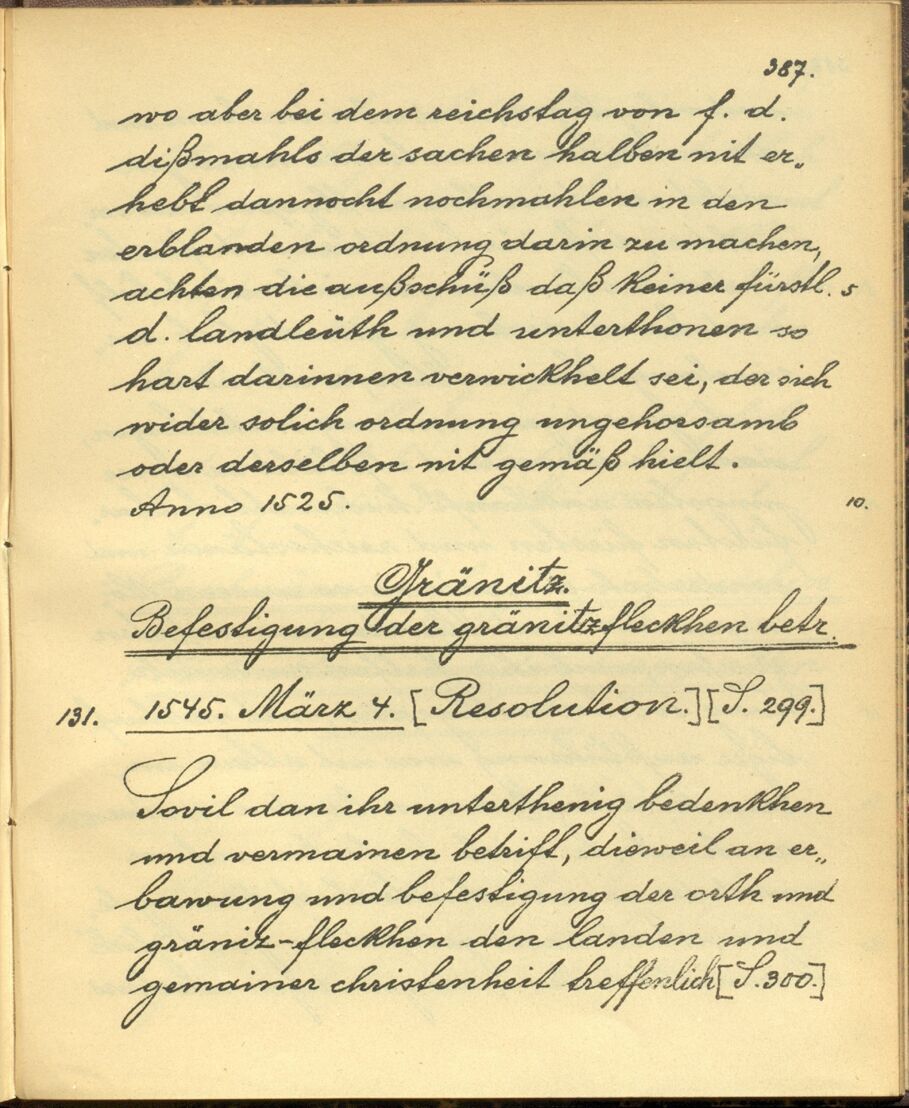 387.
wo aber bei dem reichstag von f. d.
dißmahls der sachen halben nit er„
hebt dannocht nochmahlen in den
erblanden ordnung darin zu machen,
achten die außschüß daß keiner fürstl. 5
d. landleüth und unterthonen so
hart darinnen verwickhelt sei, der sich
wider solich ordnung ungehorsamb
oder derselben nit gemäß hielt.
Anno 1525. 10.
Gränitz.
Befestigung der gränitzfleckhen betr.
131. 1545. März 4. [Resolution.] [S. 299.]
Sovil dan ihr unterthenig bedenkhen
und vermainen betrift, dieweil an er„
bawung und befestigung der orth und
gräniz-fleckhen den landen und
gemainer christenheit treffenlich [S. 300.]